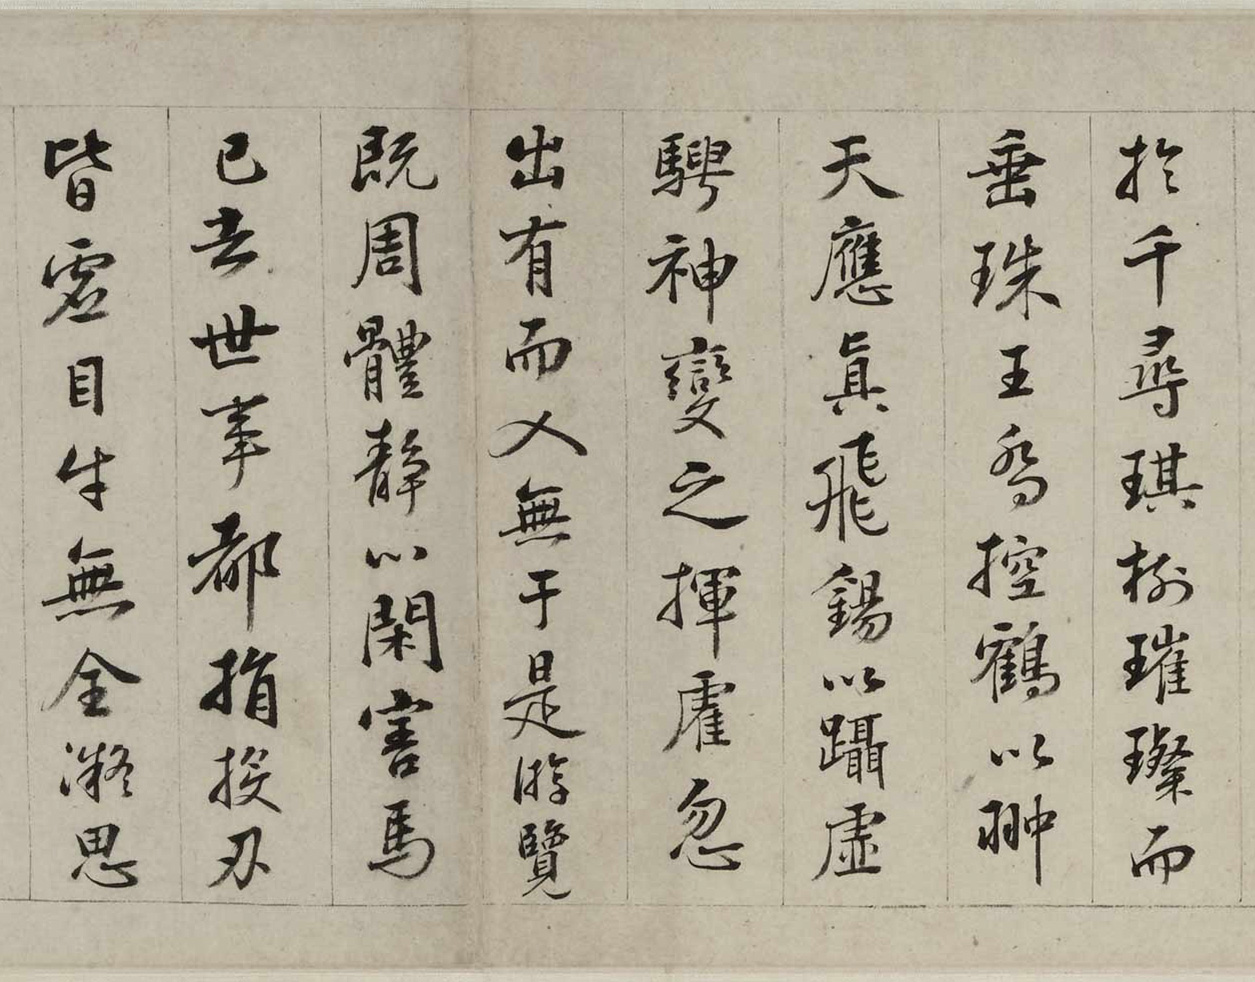 於千尋琪樹璀璨而
垂珠王喬控鶴以翀
天應真飛錫以躡虛
騁神變之揮霍忽
出有而入無于是游覽
既周體靜心閑害馬
已去世事都捐投刃
皆虛目牛無全凝思